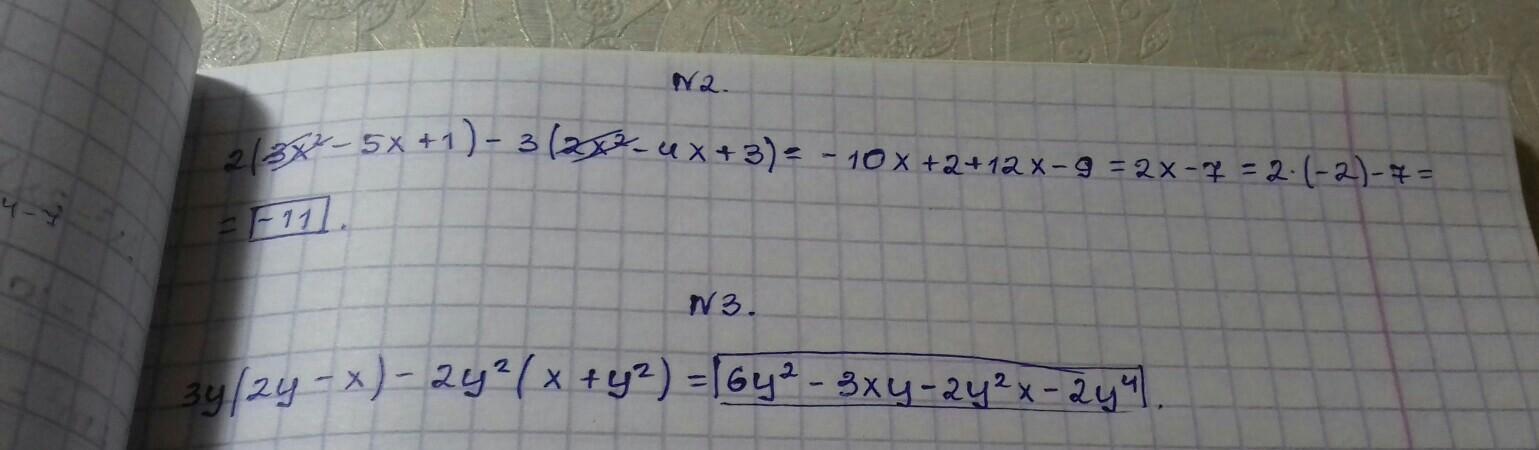 N2.
2(3x² - 5x + 1) - 3(2x² - 4x + 3) = -10x + 2 + 12x - 9 = 2x - 7 = 2·(-2) - 7 =
= -11.
N3.
3y(2y - x) - 2y²(x + y²) = 6y² - 3xy - 2y²x - 2y⁴.